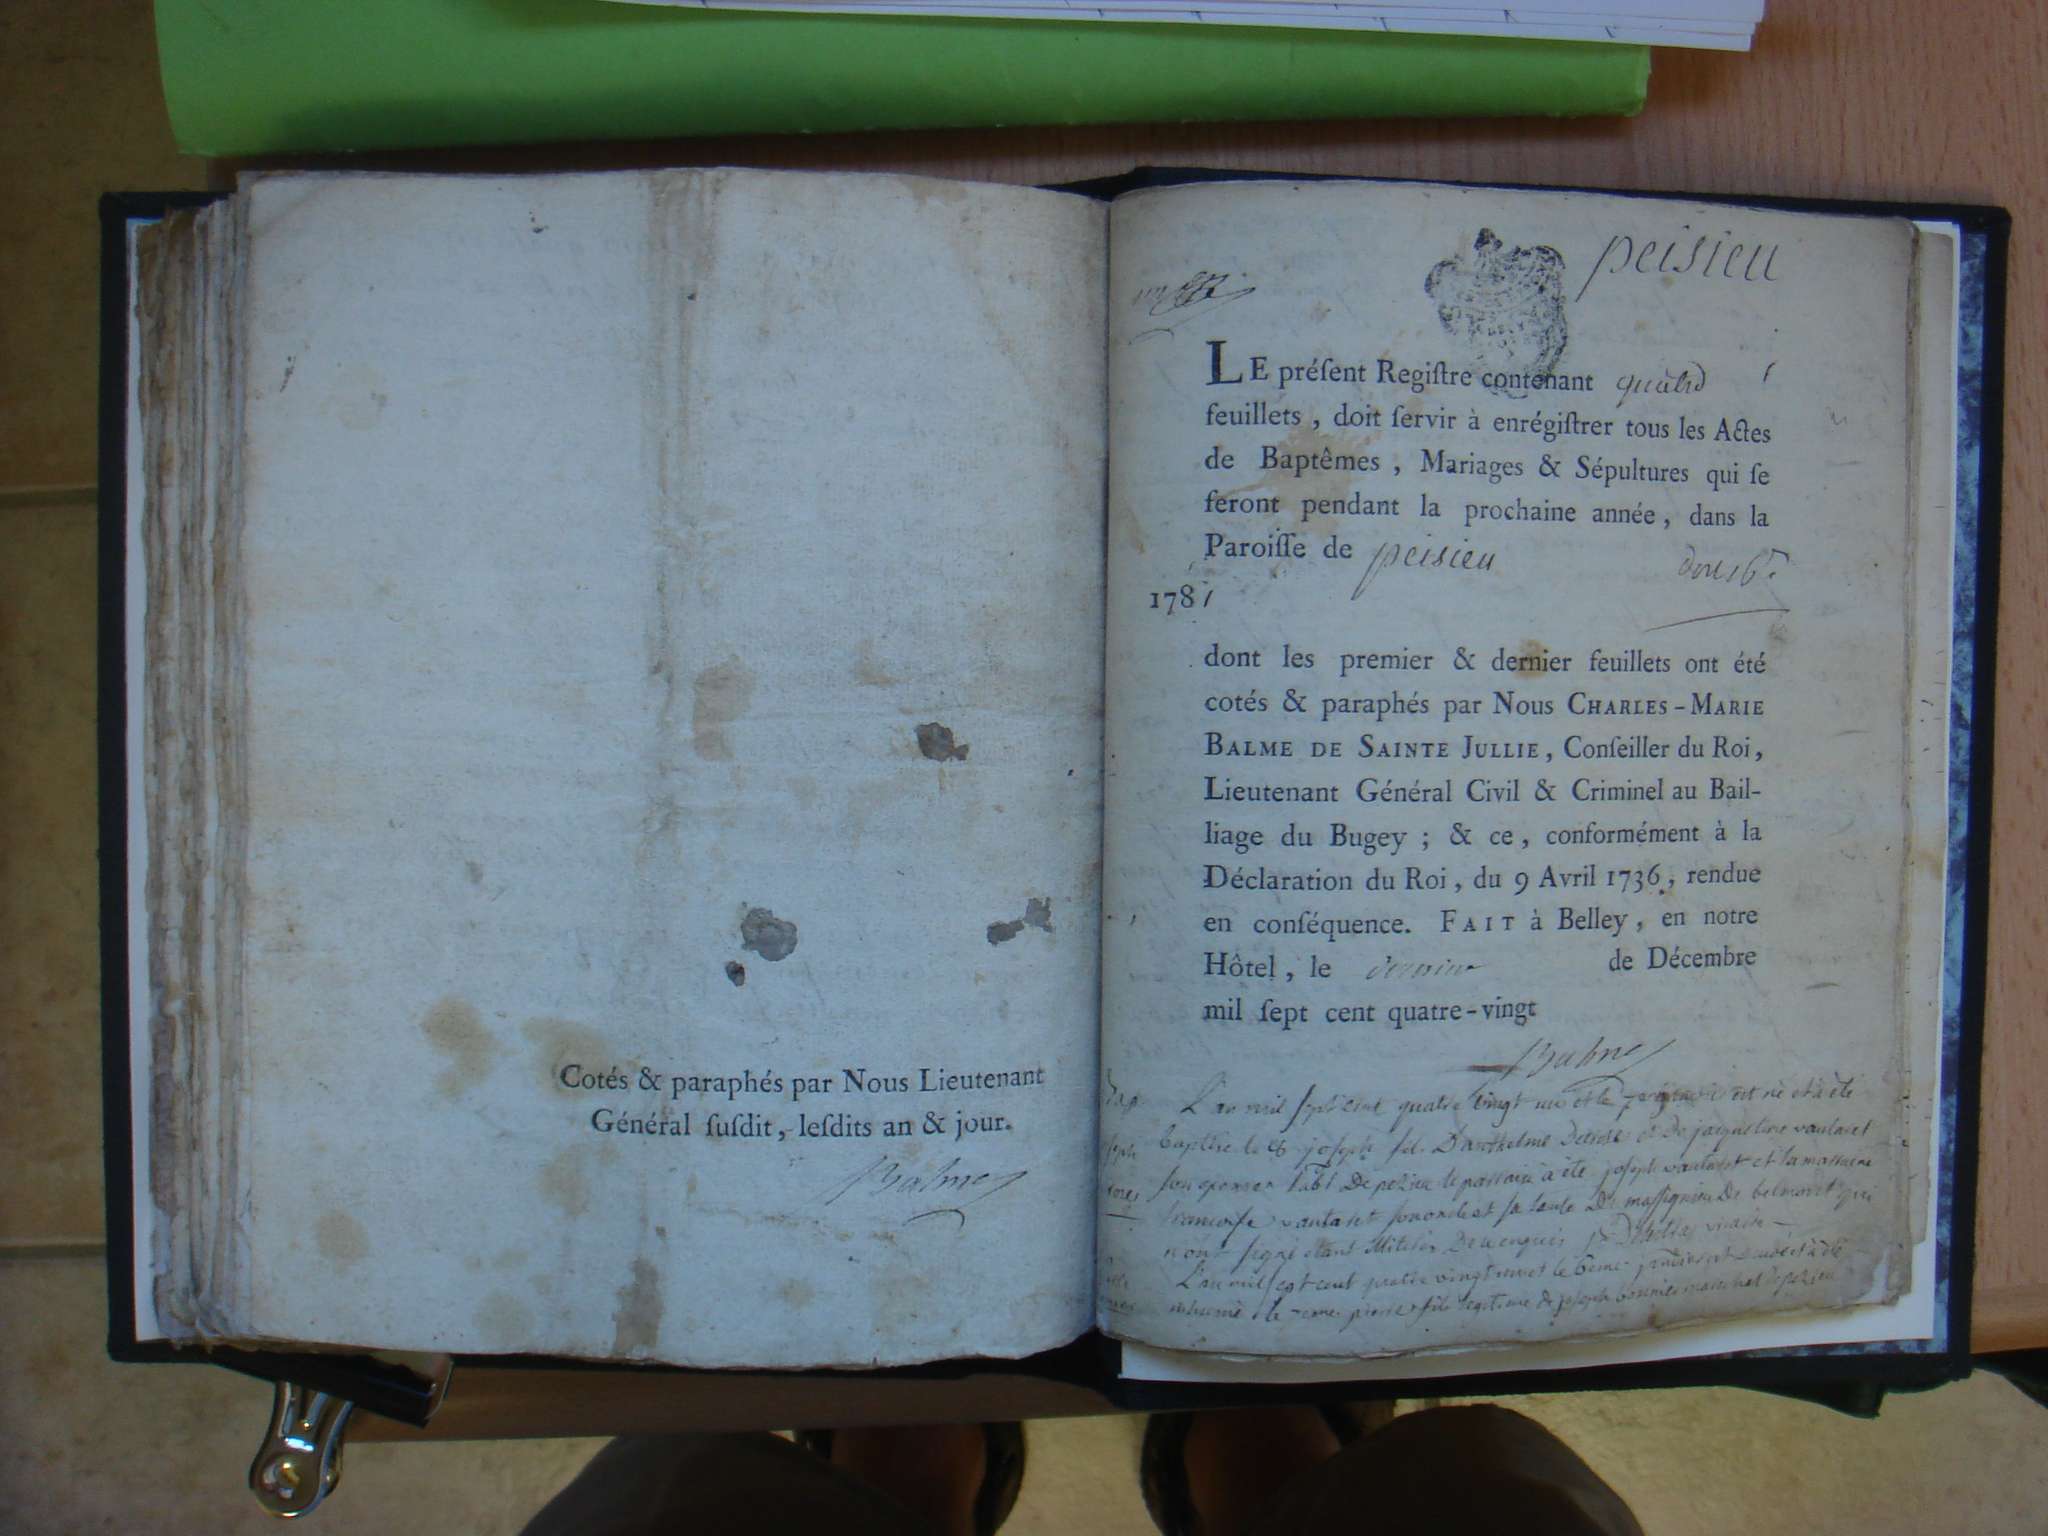 Cotés & paraphés par Nous Lieutenant
Général ſuſdit, leſdits an & jour.
Balme
peisieu
LE préſent Regiſtre contenant quatre
feuillets, doit ſervir à enrégiſtrer tous les Actes
de Baptêmes, Mariages & Sépultures qui ſe
feront pendant la prochaine année, dans la
Paroiſſe de peisieu
1781
dont les premier & dernier feuillets ont été
cotés & paraphés par Nous CHARLES-MARIE
BALME DE SAINTE JULLIE, Conſeiller du Roi,
Lieutenant Général Civil & Criminel au Bail-
liage du Bugey; & ce, conformément à la
Déclaration du Roi, du 9 Avril 1736, rendue
en conſéquence. FAIT à Belley, en notre
Hôtel, le dernier de Décembre
mil ſept cent quatre-vingt
Balme
L'an mil sept cent quatre vingt un et le est né et a été
baptisé le joseph fils D'anthelme et De jacqueline vautaret
son epouse De pezieu le parrain à été joseph vautaret et la marraine
francoise vautaret son oncle et sa tante De massignieu De belmont qui
n'ont signé De enquis vicaire
L'an mil sept cent quatre vingt un et le 6eme à été
inhumé le 7eme pierre fils legitime de joseph marechal de pezieu